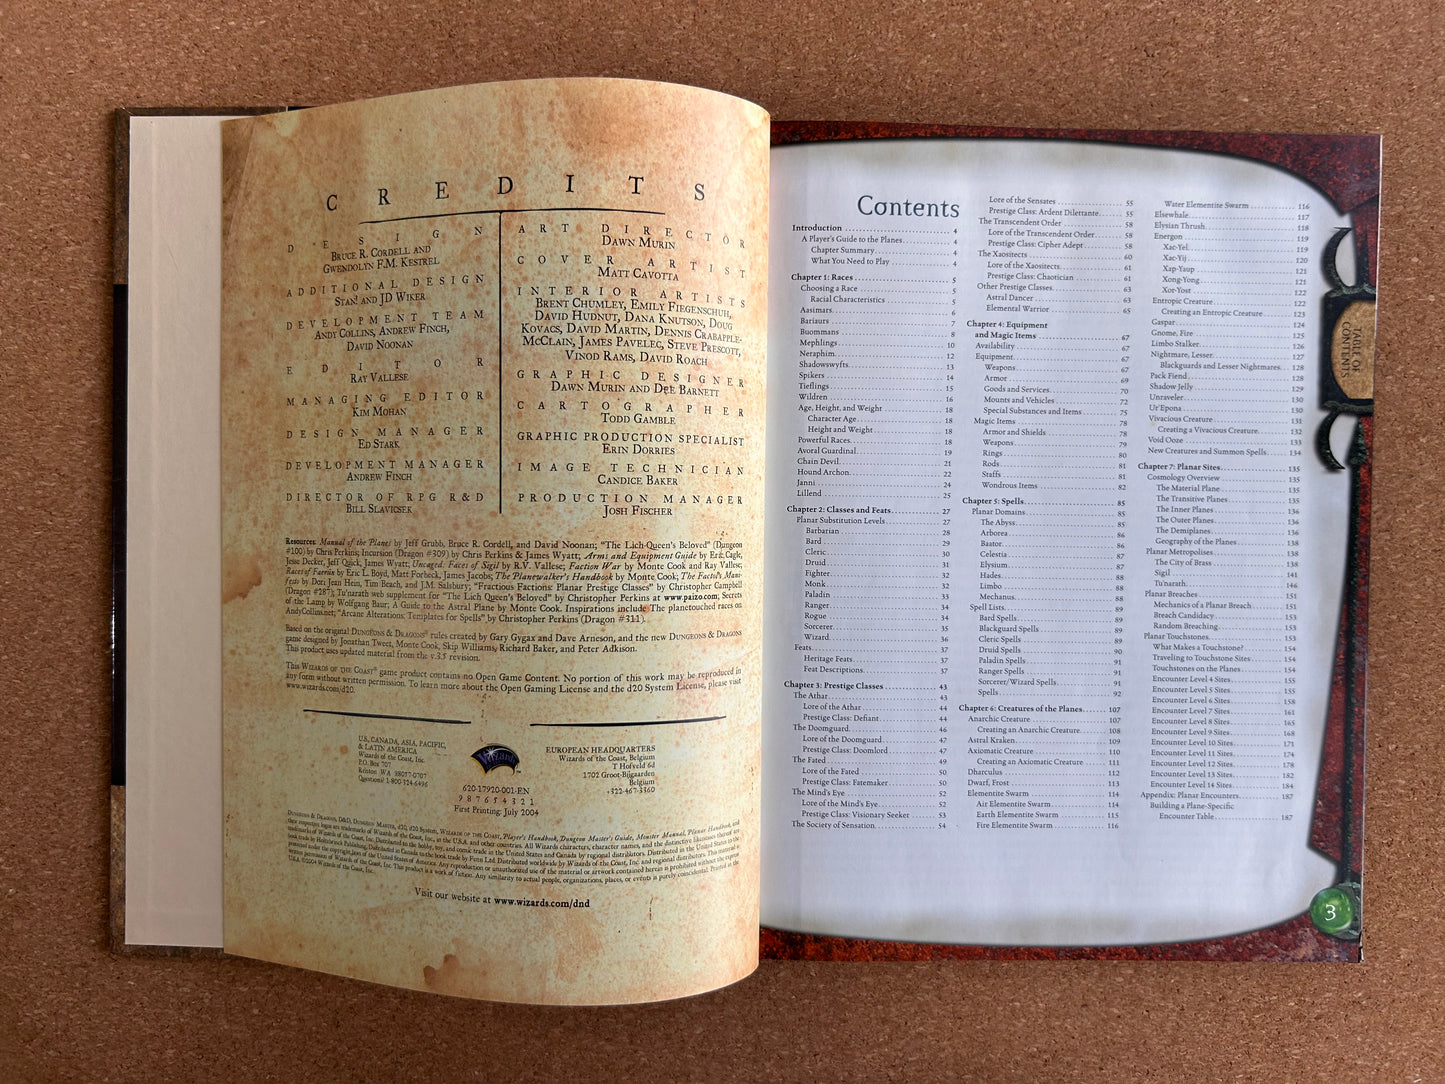 CREDITS
DESIGN
BRUCE R. CORDELL AND
GWENDOLYN F.M. KESTREL
ADDITIONAL DESIGN
STAN! AND JD WIKER
DEVELOPMENT TEAM
ANDY COLLINS, ANDREW FINCH,
DAVID NOONAN
EDITOR
RAY VALLESE
MANAGING EDITOR
KIM MOHAN
DESIGN MANAGER
ED STARK
DEVELOPMENT MANAGER
ANDREW FINCH
DIRECTOR OF RPG R&D
BILL SLAVICSEK
ART DIRECTOR
DAWN MURIN
COVER ARTIST
MATT CAVOTTA
INTERIOR ARTISTS
BRENT CHUMLEY, EMILY FIEGENSCHUH,
DAVID HUDNUT, DANA KNUTSON, DOUG
KOVACS, DAVID MARTIN, DENNIS CRABAPPLE-
MCCLAIN, JAMES PAVELEC, STEVE PRESCOTT,
VINOD RAMS, DAVID ROACH
GRAPHIC DESIGNER
DAWN MURIN AND DEE BARNETT
CARTOGRAPHER
TODD GAMBLE
GRAPHIC PRODUCTION SPECIALIST
ERIN DORRIES
IMAGE TECHNICIAN
CANDICE BAKER
PRODUCTION MANAGER
JOSH FISCHER
Resources: Manual of the Planes by Jeff Grubb, Bruce R. Cordell, and David Noonan; "The Lich-Queen's Beloved" (Dungeon
#100) by Chris Perkins; Incursion (Dragon #309) by Chris Perkins & James Wyatt; Arms and Equipment Guide by Eric Cagle,
Jesse Decker, Jeff Quick, James Wyatt; Uncaged: Faces of Sigil by R.V. Vallese; Faction War by Monte Cook and Ray Vallese;
Races of Faerûn by Eric L. Boyd, Matt Forbeck, James Jacobs; The Planewalker's Handbook by Monte Cook; The Factol's Mani-
festo by Dori Jean Hein, Tim Beach, and J.M. Salsbury; "Fractious Factions: Planar Prestige Classes" by Christopher Campbell
(Dragon #287); Tu'narath web supplement for "The Lich Queen's Beloved" by Christopher Perkins at www.paizo.com; Secrets
of the Lamp by Wolfgang Baur; A Guide to the Astral Plane by Monte Cook. Inspirations include: The planetouched races on
AndyCollins.net; "Arcane Alterations: Templates for Spells" by Christopher Perkins (Dragon #311).
Based on the original DUNGEONS & DRAGONS® rules created by Gary Gygax and Dave Arneson, and the new DUNGEONS & DRAGONS
game designed by Jonathan Tweet, Monte Cook, Skip Williams, Richard Baker, and Peter Adkison.
This product uses updated material from the v.3.5 revision.
This WIZARDS OF THE COAST® game product contains no Open Game Content. No portion of this work may be reproduced in
any form without written permission. To learn more about the Open Gaming License and the d20 System License, please visit
www.wizards.com/d20.
U.S., CANADA, ASIA, PACIFIC,
& LATIN AMERICA
Wizards of the Coast, Inc.
P.O. Box 707
Renton WA 98057-0707
Questions? 1-800-324-6496
Wizards
620-17920-001-EN
9 8 7 6 5 4 3 2 1
First Printing: July 2004
EUROPEAN HEADQUARTERS
Wizards of the Coast, Belgium
T Hofveld 6d
1702 Groot-Bijgaarden
Belgium
+322-467-3360
DUNGEONS & DRAGONS, D&D, DUNGEON MASTER, d20, d20 System, WIZARDS OF THE COAST, Player's Handbook, Dungeon Master's Guide, Monster Manual, Planar Handbook, and
their respective logos are trademarks of Wizards of the Coast, Inc., in the U.S.A. and other countries. All Wizards characters, character names, and the distinctive likenesses thereof are
trademarks of Wizards of the Coast, Inc. Distributed to the hobby, toy, and comic trade in the United States and Canada by regional distributors. Distributed in the United States to the
book trade by Holtzbrinck Publishing. Distributed in Canada to the book trade by Fenn Ltd. Distributed worldwide by Wizards of the Coast, Inc. and regional distributors. This material is
protected under the copyright laws of the United States of America. Any reproduction or unauthorized use of the material or artwork contained herein is prohibited without the express
written permission of Wizards of the Coast, Inc. This product is a work of fiction. Any similarity to actual people, organizations, places, or events is purely coincidental. Printed in the
U.S.A. ©2004 Wizards of the Coast, Inc.
Visit our website at www.wizards.com/dnd
Contents
Introduction 4
A Player's Guide to the Planes 4
Chapter Summary 4
What You Need to Play 4
Chapter 1: Races 5
Choosing a Race 5
Racial Characteristics 5
Aasimars 6
Bariaurs 7
Buommans 8
Mephlings 10
Neraphim 12
Shadowswyfts 13
Spikers 14
Tieflings 15
Wildren 16
Age, Height, and Weight 18
Character Age 18
Height and Weight 18
Powerful Races 18
Avoral Guardinal 19
Chain Devil 21
Hound Archon 22
Janni 24
Lillend 25
Chapter 2: Classes and Feats 27
Planar Substitution Levels 27
Barbarian 28
Bard 29
Cleric 30
Druid 31
Fighter 32
Monk 32
Paladin 33
Ranger 34
Rogue 34
Sorcerer 35
Wizard 36
Feats 37
Heritage Feats 37
Feat Descriptions 37
Chapter 3: Prestige Classes 43
The Athar 43
Lore of the Athar 44
Prestige Class: Defiant 44
The Doomguard 46
Lore of the Doomguard 47
Prestige Class: Doomlord 47
The Fated 49
Lore of the Fated 50
Prestige Class: Fatemaker 50
The Mind's Eye 52
Lore of the Mind's Eye 52
Prestige Class: Visionary Seeker 53
The Society of Sensation 54
Lore of the Sensates 55
Prestige Class: Ardent Dilettante 55
The Transcendent Order 58
Lore of the Transcendent Order 58
Prestige Class: Cipher Adept 58
The Xaositects 60
Lore of the Xaositects 61
Prestige Class: Chaotician 61
Other Prestige Classes 63
Astral Dancer 63
Elemental Warrior 65
Chapter 4: Equipment
and Magic Items 67
Availability 67
Equipment 67
Weapons 67
Armor 69
Goods and Services 70
Mounts and Vehicles 72
Special Substances and Items 75
Magic Items 78
Armor and Shields 78
Weapons 79
Rings 80
Rods 81
Staffs 81
Wondrous Items 82
Chapter 5: Spells 85
Planar Domains 85
The Abyss 85
Arborea 86
Baator 86
Celestia 87
Elysium 87
Hades 88
Limbo 88
Mechanus 88
Spell Lists 89
Bard Spells 89
Blackguard Spells 89
Cleric Spells 89
Druid Spells 90
Paladin Spells 91
Ranger Spells 91
Sorcerer/Wizard Spells 91
Spells 92
Chapter 6: Creatures of the Planes 107
Anarchic Creature 107
Creating an Anarchic Creature 108
Astral Kraken 109
Axiomatic Creature 110
Creating an Axiomatic Creature 111
Dharculus 112
Dwarf, Frost 113
Elementite Swarm 114
Air Elementite Swarm 114
Earth Elementite Swarm 115
Fire Elementite Swarm 116
Water Elementite Swarm 116
Elsewhale 117
Elysian Thrush 118
Energon 119
Xac-Yel 119
Xac-Yij 120
Xap-Yaup 121
Xong-Yong 121
Xor-Yost 122
Entropic Creature 122
Creating an Entropic Creature 123
Gaspar 124
Gnome, Fire 125
Limbo Stalker 126
Nightmare, Lesser 127
Blackguards and Lesser Nightmares 128
Pack Fiend 128
Shadow Jelly 129
Unraveler 130
Ur'Epona 131
Vivacious Creature 131
Creating a Vivacious Creature 132
Void Ooze 133
New Creatures and Summon Spells 134
Chapter 7: Planar Sites 135
Cosmology Overview 135
The Material Plane 135
The Transitive Planes 135
The Inner Planes 136
The Outer Planes 136
The Demiplanes 136
Geography of the Planes 138
Planar Metropolises 138
The City of Brass 138
Sigil 141
Tu'narath 146
Planar Breaches 151
Mechanics of a Planar Breach 151
Breach Candidacy 153
Random Breaching 153
Planar Touchstones 153
What Makes a Touchstone? 154
Traveling to Touchstone Sites 154
Touchstones on the Planes 154
Encounter Level 4 Sites 155
Encounter Level 5 Sites 155
Encounter Level 6 Sites 158
Encounter Level 7 Sites 161
Encounter Level 8 Sites 165
Encounter Level 9 Sites 168
Encounter Level 10 Sites 171
Encounter Level 11 Sites 174
Encounter Level 12 Sites 178
Encounter Level 13 Sites 182
Encounter Level 14 Sites 184
Appendix: Planar Encounters 187
Building a Plane-Specific
Encounter Table 187
TABLE OF
CONTENTS
3